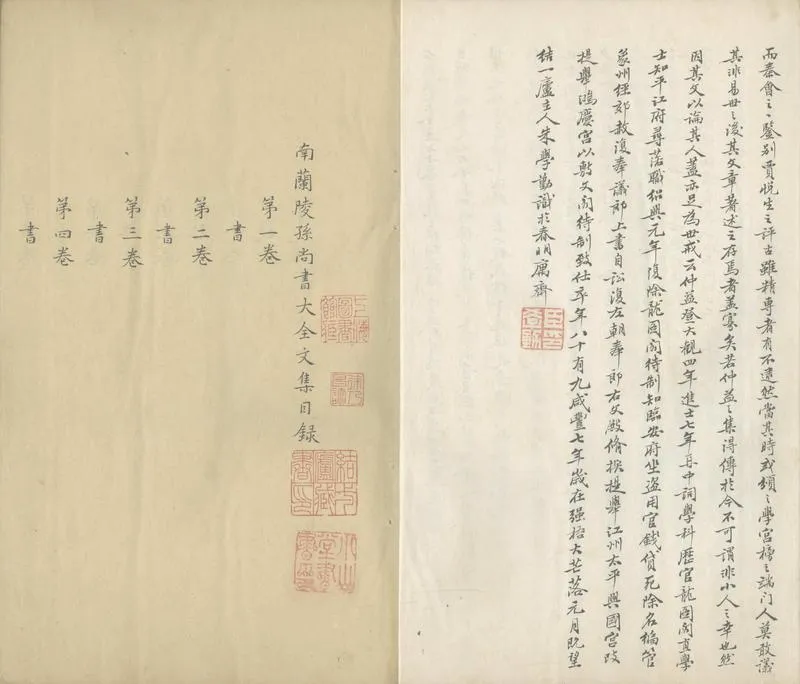 而秦會之之鑒別賈悅生之評古雖精專者有不逮然當其時或頌之學宮榜之端门人莫敢議
其非易世之後其文章著述之存焉者蓋寥矣若仲益之集得傳於今不可謂非小人之幸也然
因其文以論其人蓋亦足為世戒云仲益登大觀四年進士七年再中詞學科歷官龍圖閣直學
士知平江府尋落職紹興元年復除龍圖閣待制知臨安府坐盜用官錢貸死除名編管
象州經郊赦復奉議郎上書自訟復左朝奉郎右文殿脩撰提舉江州太平興國宮改
提舉鴻慶宮以敷文閣待制致仕卒年八十有九咸豐七年歲在强梧大芒落元月既望
結一廬主人朱學勤識於春明寓齋
南蘭陵孫尚書大全文集目錄
上海圖書館藏
結一廬藏書印
第一卷
書
第二卷
書
第三卷
書
第四卷
書